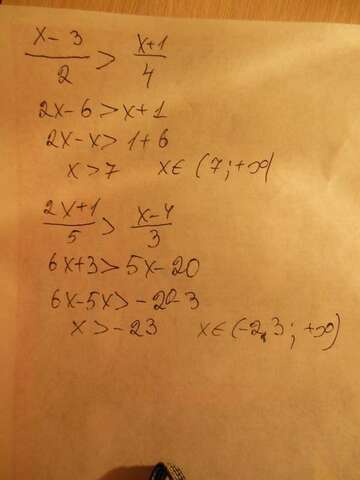 x-3/2 > x+1/4
2x-6>x+1
2x-x>1+6
x>7 x∈(7;+∞)
2x+1/5 > x-4/3
6x+3>5x-20
6x-5x>-20-3
x>-23 x∈(-2,3;+∞)